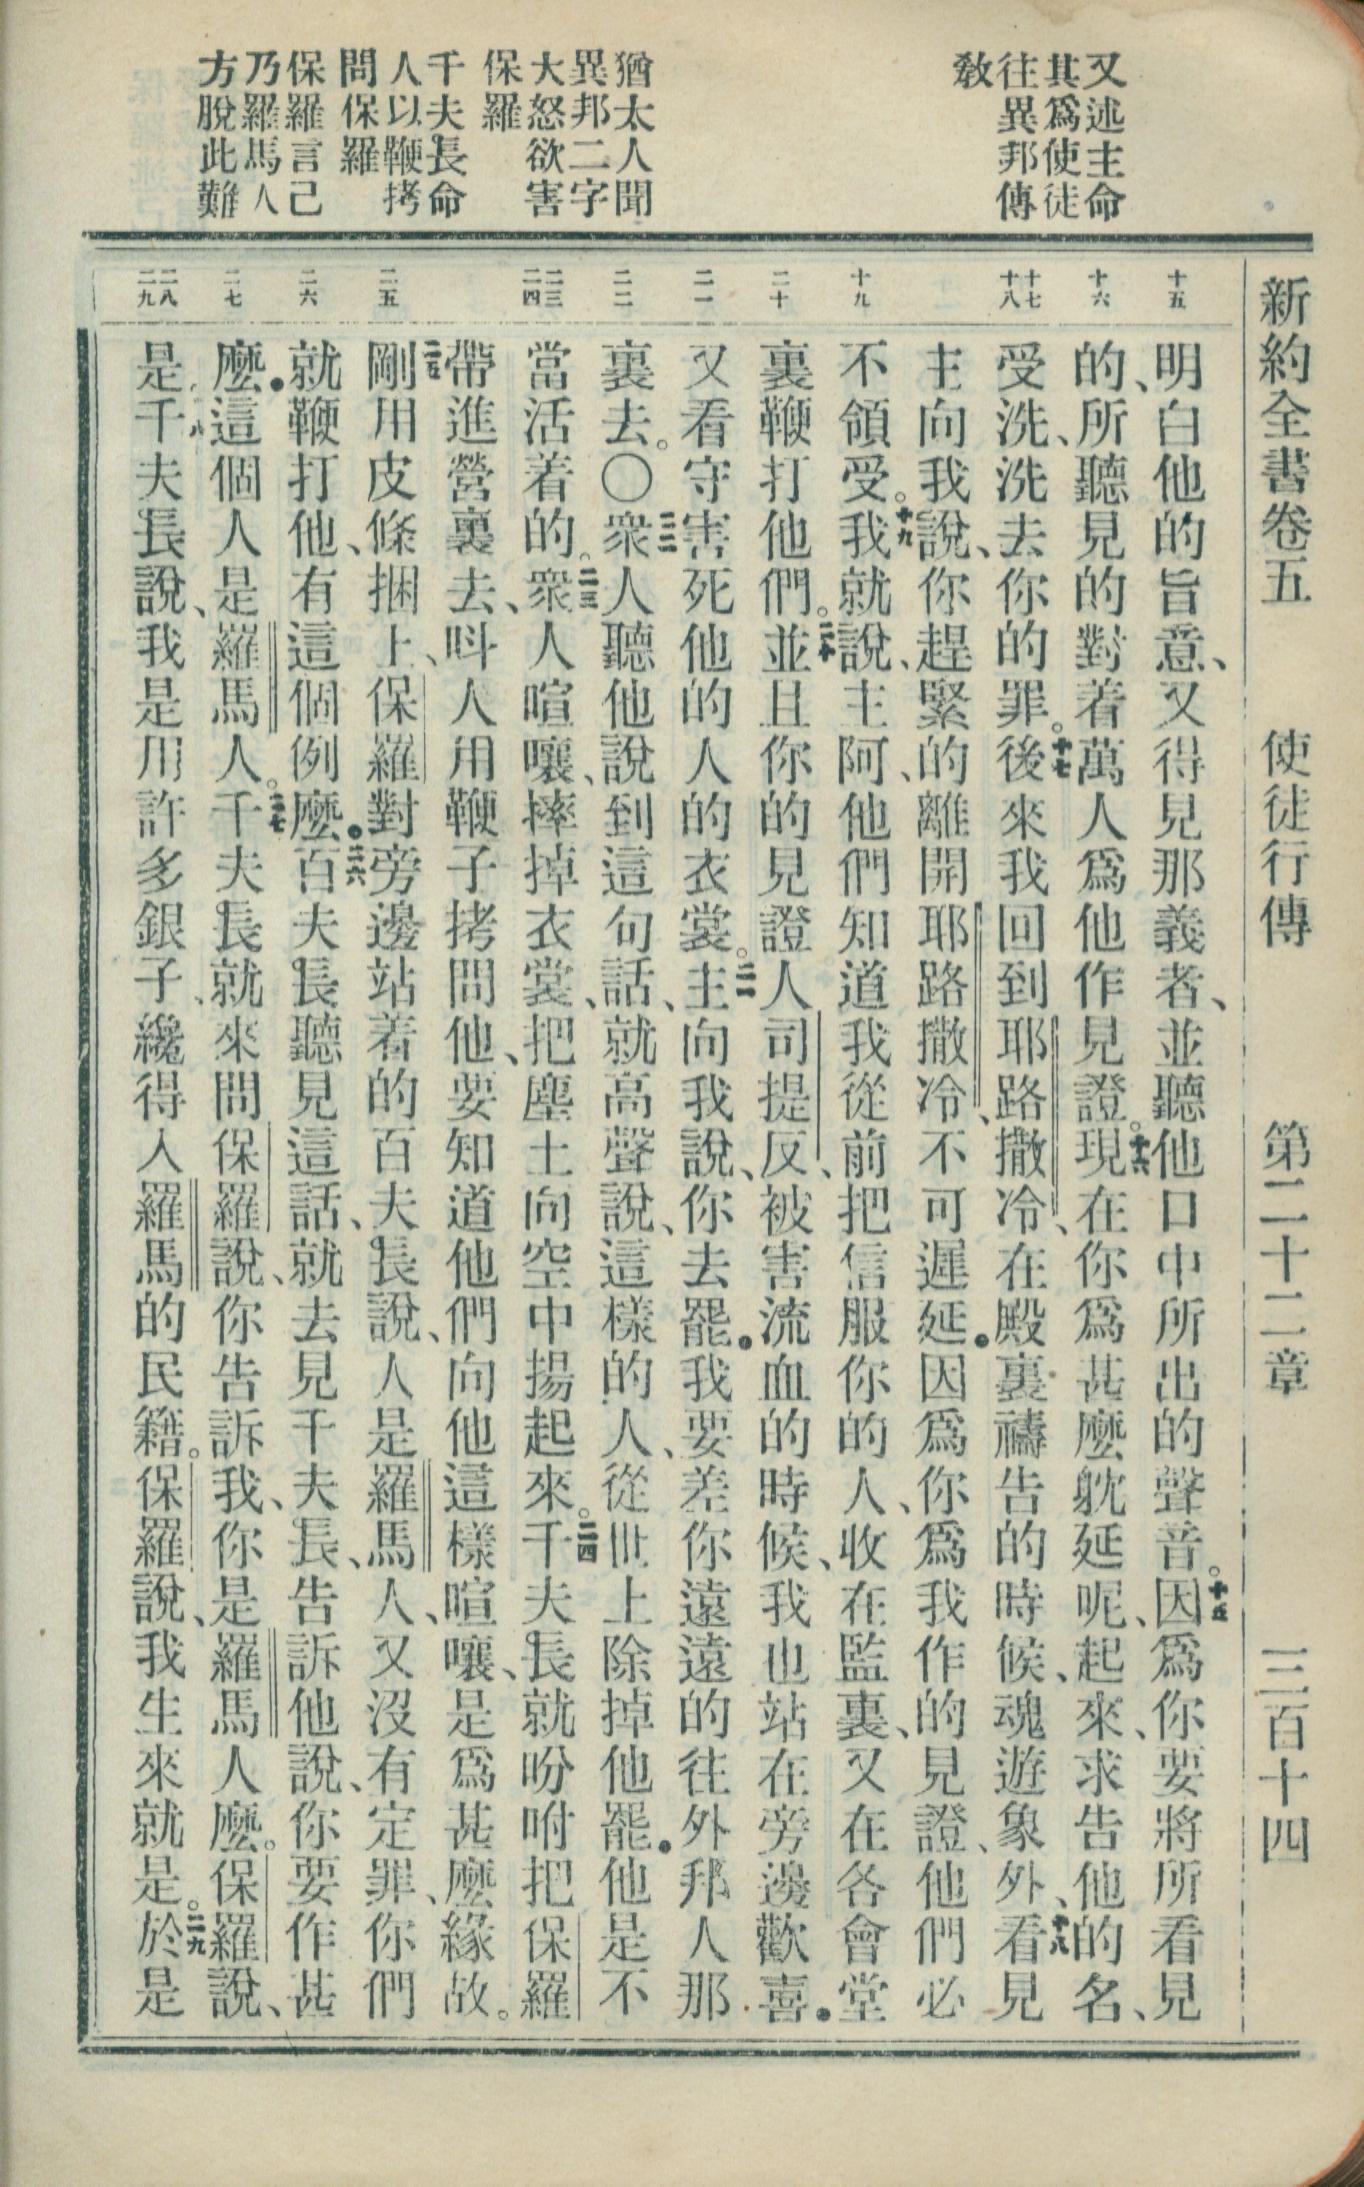 新約全書卷五 使徒行傳 第二十二章 三百十四
又述主命
其爲使徒
往異邦傳
敎
猶太人聞
異邦二字
大怒欲害
保羅
千夫長命
人以鞭拷
問保羅
保羅言己
乃羅馬人
方脫此難
十五
十六
十七
十八
十九
二十
二一
二二
二三
二四
二五
二六
二七
二八
二九
明白他的旨意、又得見那義者、並聽他口中所出的聲音。十五因爲你要將所看見
的、所聽見的對着萬人爲他作見證。十六現在你爲甚麼躭延呢、起來、求告他的名、
受洗、洗去你的罪。十七後來我回到耶路撒冷、在殿裏禱告的時候、魂遊象外、十八看見
主向我說、你趕緊的離開耶路撒冷、不可遲延．因爲你爲我作的見證、他們必
不領受。十九我就說、主阿、他們知道我從前把信服你的人、收在監裏、又在各會堂
裏鞭打他們。二十並且你的見證人司提反、被害流血的時候、我也站在旁邊歡喜．
又看守害死他的人的衣裳。二一主向我說、你去罷．我要差你遠遠的往外邦人那
裏去。○二二衆人聽他說到這句話、就高聲說、這樣的人、從世上除掉他罷．他是不
當活着的。二三衆人喧嚷、摔掉衣裳、把塵土向空中揚起來。二四千夫長就吩咐把保羅
帶進營裏去、呌人用鞭子拷問他、要知道他們向他這樣喧嚷、是爲甚麼緣故。
二五剛用皮條捆上、保羅對旁邊站着的百夫長說、人是羅馬人、又沒有定罪、你們
就鞭打他、有這個例麼．二六百夫長聽見這話、就去見千夫長、告訴他說、你要作甚
麼．這個人是羅馬人。二七千夫長就來問保羅說、你告訴我、你是羅馬人麼。保羅說、
是二八千夫長說、我是用許多銀子、纔得入羅馬的民籍。保羅說、我生來就是。二九於是